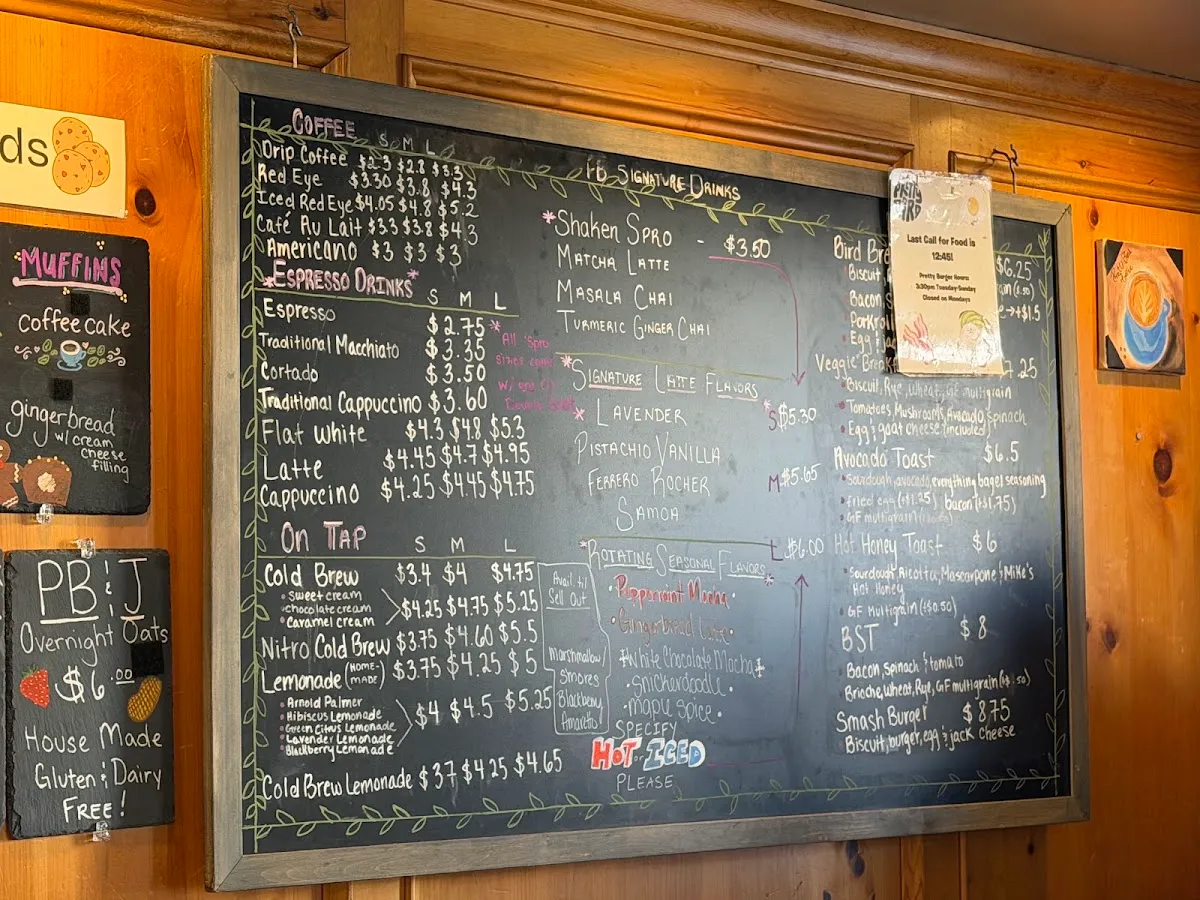 ds
MUFFINS
coffee cake
gingerbread
w/ cream
cheese
filling
PB & J
Overnight Oats
$6.00
House Made
Gluten & Dairy
FREE!
COFFEE S M L
Drip Coffee $2.3 $2.8 $3.3
Red Eye $3.30 $3.8 $4.3
Iced Red Eye $4.05 $4.8 $5.2
Café Au Lait $3.3 $3.8 $4.3
Americano $3 $3 $3
*ESPRESSO DRINKS*
S M L
Espresso $2.75
Traditional Macchiato $3.35
Cortado $3.50
Traditional Cappuccino $3.60
* All 'Spro
sizes
Flat White $4.3 $4.8 $5.3
Latte $4.45 $4.7 $4.95
Cappuccino $4.25 $4.45 $4.75
ON TAP S M L
Cold Brew $3.4 $4 $4.75
• sweet cream
• chocolate cream
• caramel cream
$4.25 $4.75 $5.25
Nitro Cold Brew $3.75 $4.60 $5.5
Lemonade (HOME-MADE) $3.75 $4.25 $5
• Arnold Palmer
• Hibiscus Lemonade
• Green Citrus Lemonade
• Lavender Lemonade
• Blackberry Lemonade
$4 $4.5 $5.25
Cold Brew Lemonade $3.7 $4.25 $4.65
Avail. til
Sell Out
Marshmallow
Smores
Blackberry
Amaretto
PB SIGNATURE DRINKS
* SHAKEN SPRO - $3.50
MATCHA LATTE
MASALA CHAI
TURMERIC GINGER CHAI
* SIGNATURE LATTE FLAVORS *
LAVENDER
PISTACHIO VANILLA
FERRERO ROCHER
SAMOA
S $5.30
M $5.65
L $6.00
* ROTATING SEASONAL FLAVORS *
• Peppermint Mocha •
• Gingerbread Latte •
White Chocolate Mocha
• snickerdoodle •
• maple spice •
SPECIFY
HOT or ICED
PLEASE
Bird Bre
$6.25
Biscuit,
Bacon
Porkro
• Egg & jac
PRETTY BIRD
Last Call for Food is
12:45!
Pretty Burger Hours:
3:30pm Tuesday-Sunday
Closed on Mondays
Veggie Break
7.25
• Biscuit, Rye, wheat, GF multigrain
• Tomatoes, Mushrooms, Avocado, spinach
• Egg & goat cheese (included)
Avocado Toast $6.5
• sourdough, avocado, everything bagel seasoning
• fried egg (+$1.25) bacon (+$1.75)
• GF multigrain
Hot Honey Toast $6
• Sourdough, Ricotta, Mascarpone & Mike's
Hot Honey
• GF multigrain (+$0.50)
BST $8
• Bacon, spinach & tomato
Brioche, wheat, Rye, GF multigrain (+$.50)
Smash Burger $8.75
Biscuit, burger, egg & jack cheese